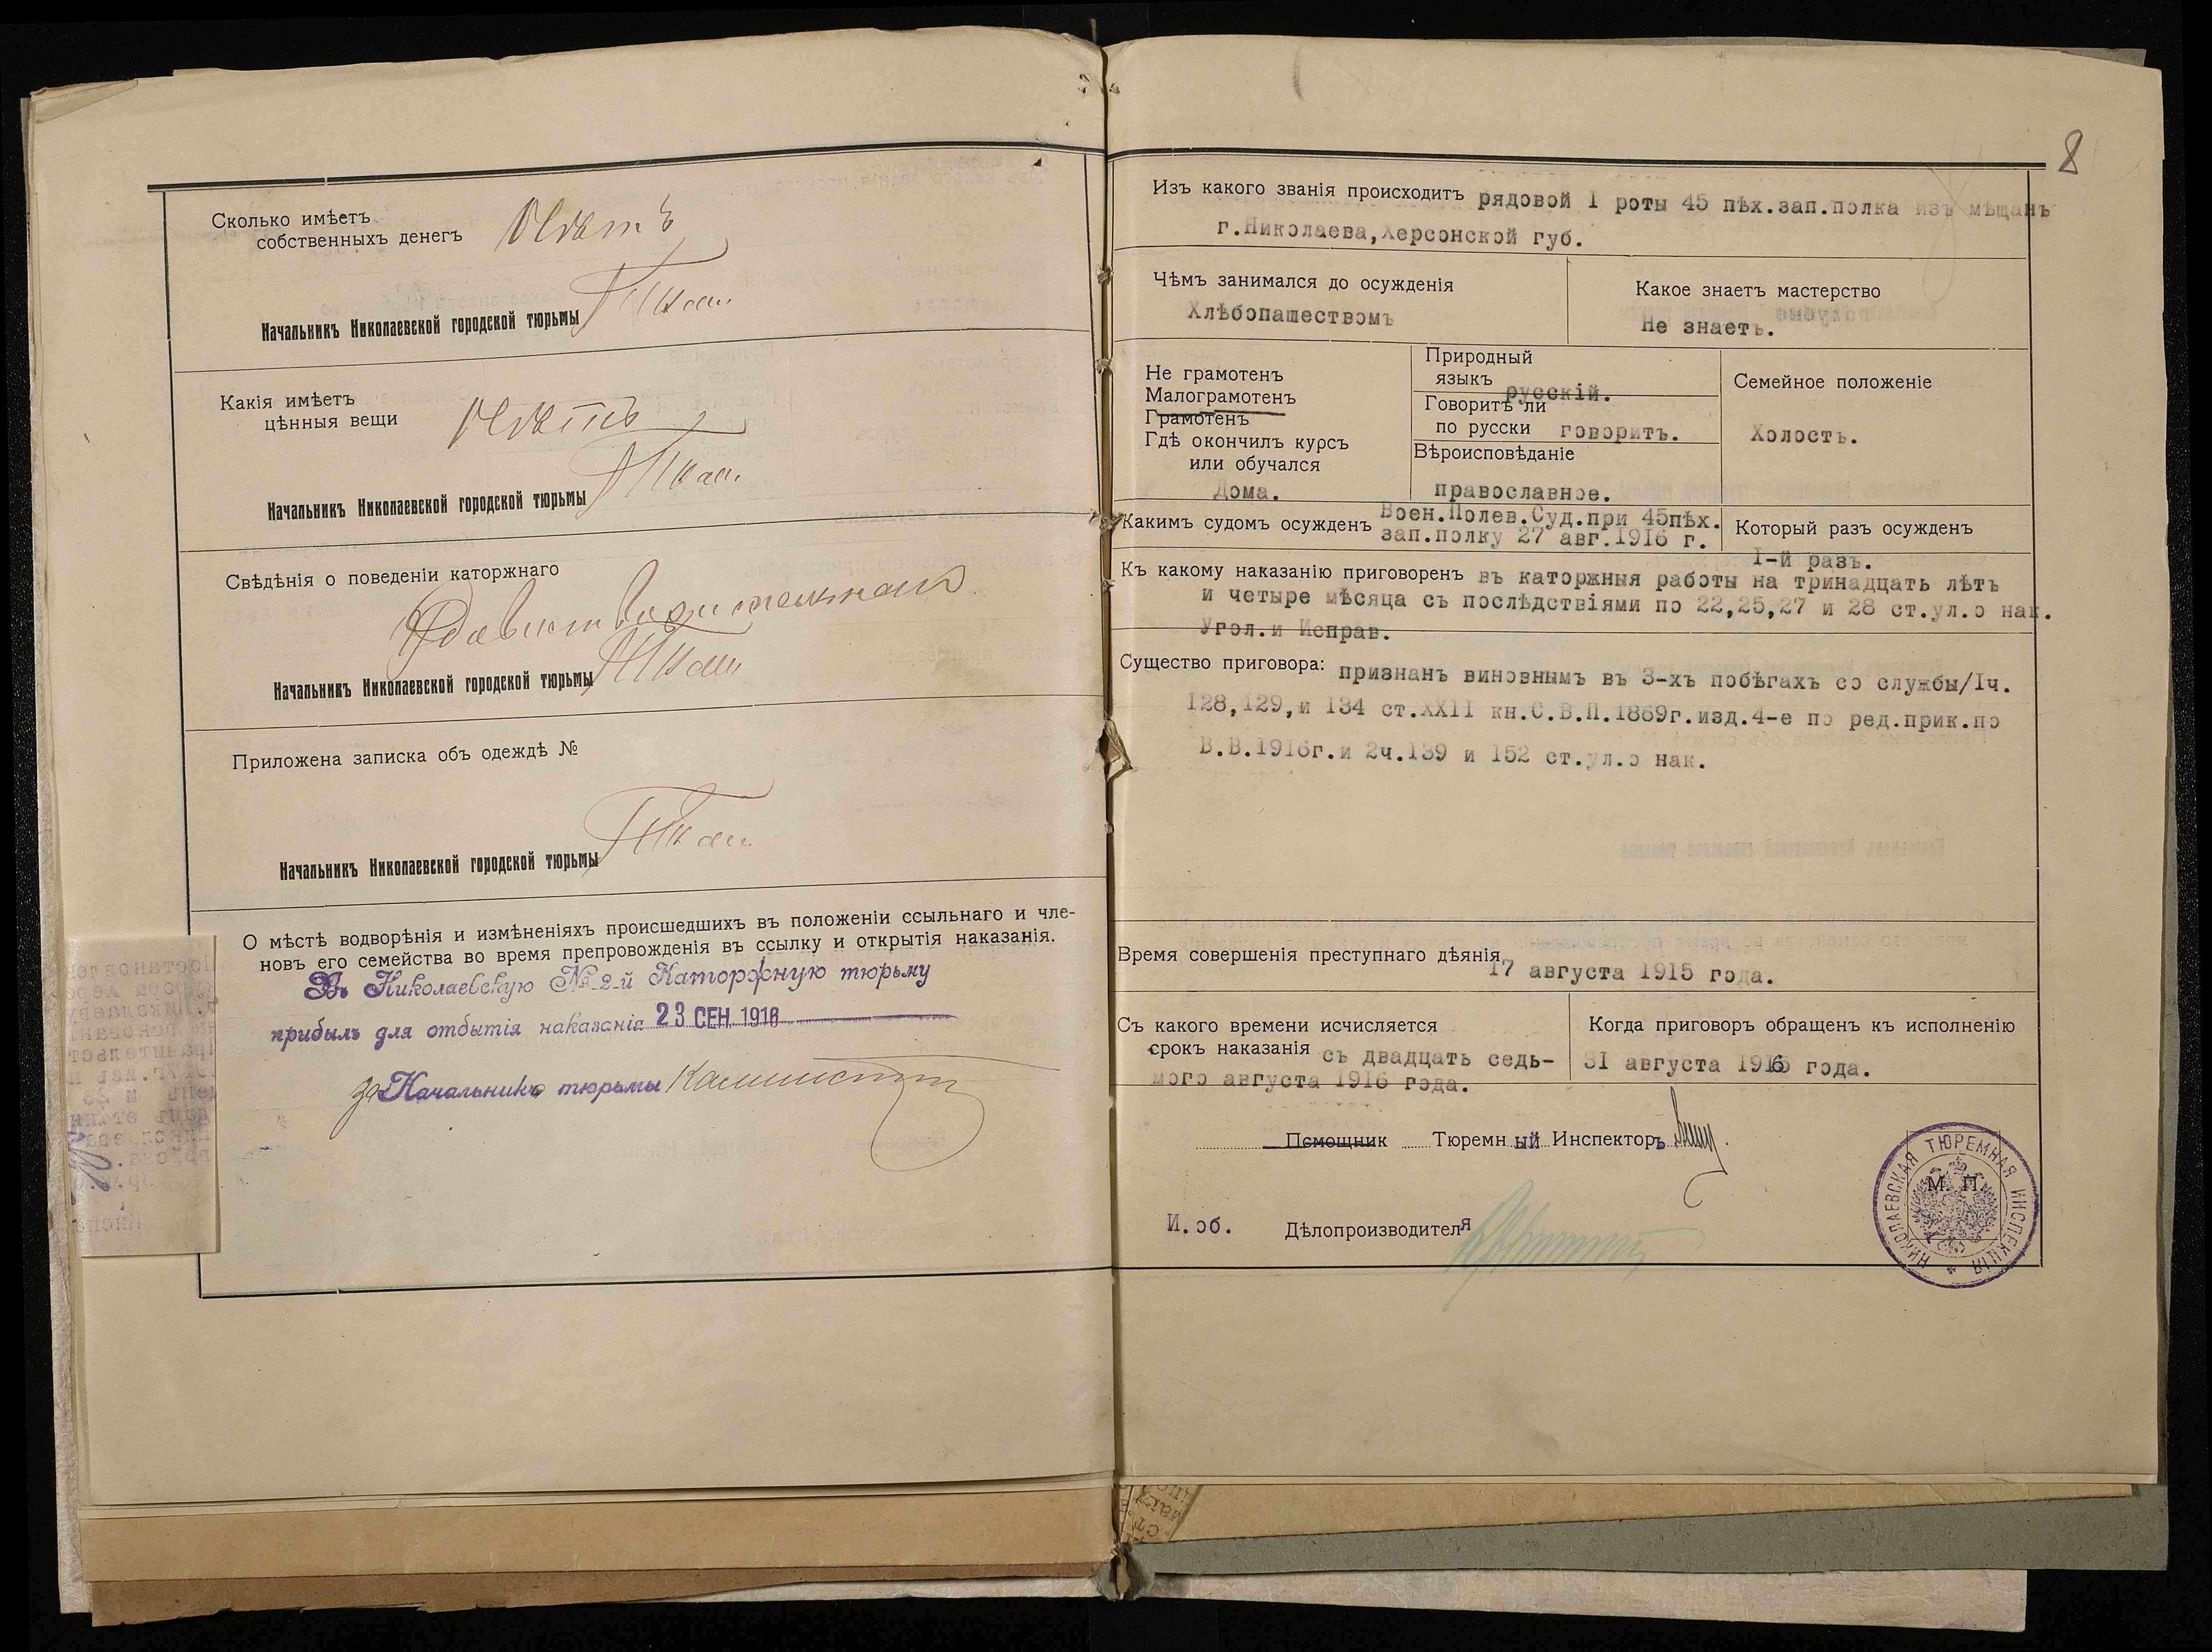 Сколько имѣетъ
собственныхъ денегъ Нѣтъ
Начальникъ Николаевской городской тюрьмы
Какія имѣетъ
цѣнныя вещи Нѣтъ
Начальникъ Николаевской городской тюрьмы
Свѣдѣнія о поведеніи каторжнаго
Начальникъ Николаевской городской тюрьмы
Приложена записка объ одеждѣ №
Начальникъ Николаевской городской тюрьмы
О мѣстѣ водворѣнія и измѣненіяхъ происшедшихъ въ положеніи ссыльнаго и чле-
новъ его семейства во время препровожденія въ ссылку и открытія наказанія.
Въ Николаевскую № 2-й Каторжную тюрьму
прибылъ для отбытія наказанія 23 СЕН. 1916
за Начальника тюрьмы
8
Изъ какого званія происходитъ рядовой I роты 45 пѣх.зап.полка изъ мѣщанъ
г.Николаева,Херсонской губ.
Чѣмъ занимался до осужденія
Хлѣбопашествомъ
Какое знаетъ мастерство
Не знаетъ.
Не грамотенъ
Малограмотенъ
Грамотенъ
Гдѣ окончилъ курсъ
или обучался
Дома.
Природный
языкъ русскій.
Говоритъ ли
по русски говоритъ.
Вѣроисповѣданіе
православное.
Семейное положеніе
Холостъ.
Какимъ судомъ осужденъ Воен.Полев.Суд.при 45пѣх.
зап.полку 27 авг.1916 г.
Который разъ осужденъ
I-й разъ.
Къ какому наказанію приговоренъ въ каторжныя работы на тринадцать лѣтъ
и четыре мѣсяца съ послѣдствіями по 22,25,27 и 28 ст.ул.о нак.
Угол.и Исправ.
Существо приговора: признанъ виновнымъ въ 3-хъ побѣгахъ со службы/Iч.
128,129,и 134 ст.XXII кн.С.В.П.1869г.изд.4-е по ред.прик.по
В.В.1916г.и 2ч.139 и 152 ст.ул.о нак.
Время совершенія преступнаго дѣянія 17 августа 1915 года.
Съ какого времени исчисляется
срокъ наказанія съ двадцать седь-
мого августа 1916 года.
Когда приговоръ обращенъ къ исполненію
31 августа 1916 года.
Помощник Тюремный Инспекторъ
И.об. Дѣлопроизводителя
М. П.
НИКОЛАЕВСКАЯ ТЮРЕМНАЯ ИНСПЕКЦІЯ